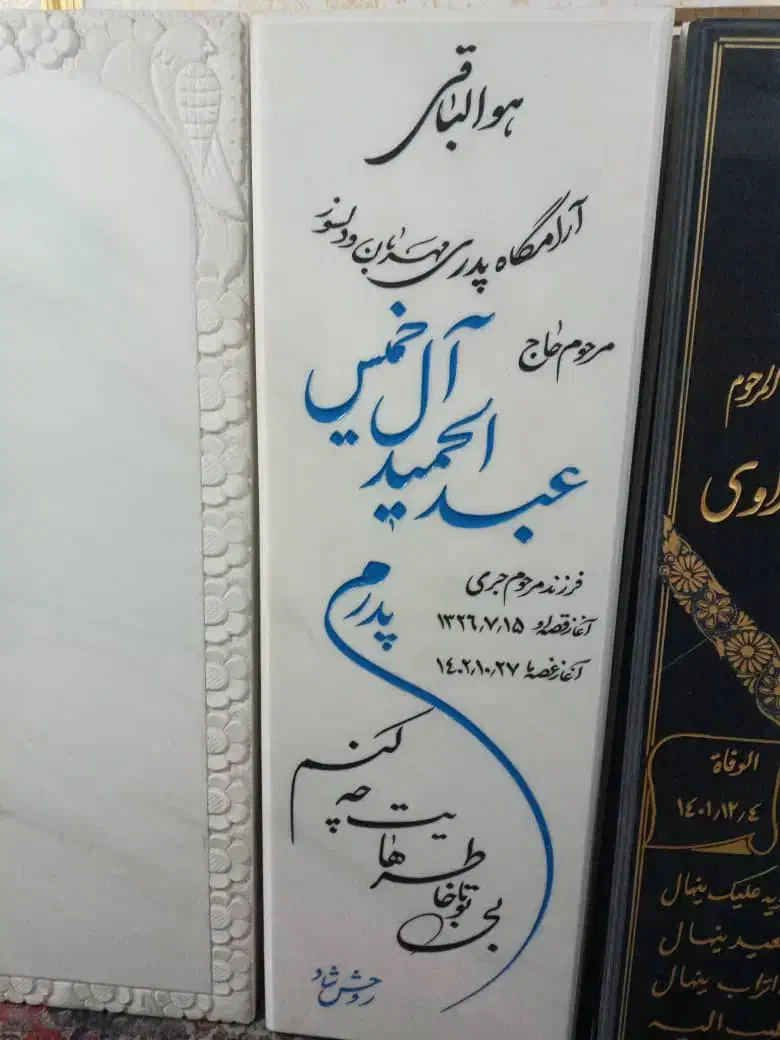 هوالباقی
آرامگاه پدری مهربان و دلسوز
مرحوم حاج
عبدالحمید آل خمیس
فرزند مرحوم جری
آغاز قصه او ١٣٢٦٫٧٫١٥
آغاز غصه ما ١٤٠٢٫١٠٫٢٧
پدرم
بی تو با خاطرهایت چه کنم
روحش شاد
المرحوم
راوی
الوفاة
١٤٠١٫١٢٫٤
علیک ینهال
ینهال
اتراب ینهال
الیه